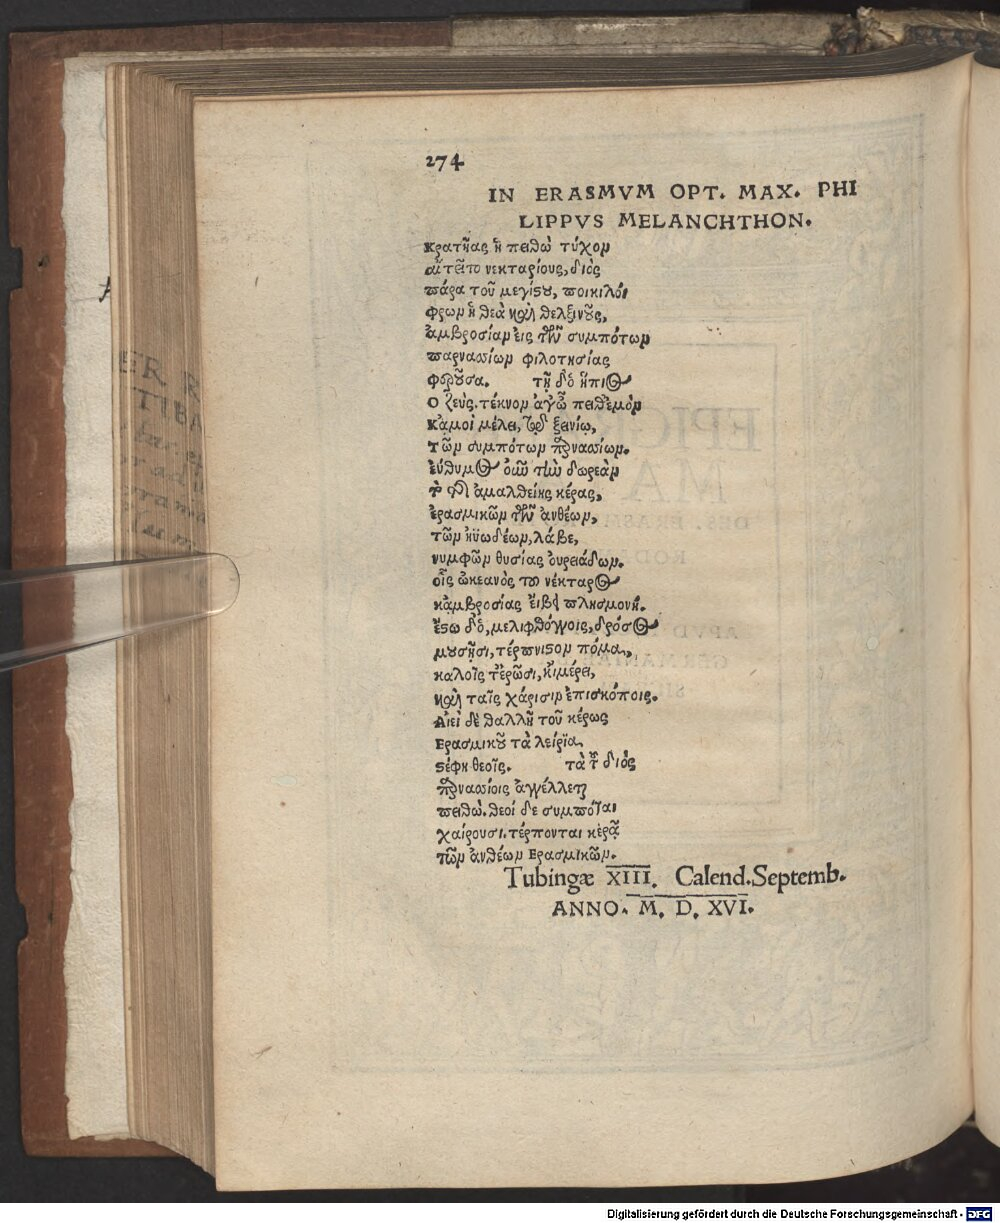 274
IN ERASMVM OPT. MAX. PHI
LIPPVS MELANCHTHON.
Κρατῆρας ἡ πειθὼ τύχον
αἰτεῖτο νεκταρίους, διὸς
πάρα τοῦ μεγίστου, ποικιλό
φρων ἡ θεὰ καὶ θελξινοῦς,
ἀμβροσίαν εἰς τῶν συμπότων
παρνασσίων φιλοτησίας
φοροῦσα. τῇ δ' ὁ ἤπιος
Ο ζεὺς. τέκνον ἀγῶ πειθεμὸν
Κἀμοὶ μέλει, ξενίω,
Τῶν συμπότων παρνασσίων.
εὔθυμος οὖν τὴν δωρεὰν
ἀμαλθείης κέρας,
ἐρασμικῶν τῶν ἀνθέων,
τῶν ἡϋωδέων, λάβε,
νυμφῶν θυσίας ὀυρειάδων.
οἷς ὠκεανὸς τοῦ νέκταρος
κἀμβροσίας εἴβει πλησμονῇ.
ἔστω δ' ὁ, μελιφθόγγοις, δρόσος
μούσῃσι, τέρπνιστον πόμα,
καλοῖς τ' ἔρωσι, χ' ἱμέρει,
καὶ ταῖς χάρισιν ἐπισκόποις.
Αἰεὶ δὲ θαλλῇ τοῦ κέρως
Ερασμικοῦ τὰ λείρια,
στέφη θεοῖς. τὰ τοῦ διὸς
παρνασσίοις ἀγγέλλεται
πειθώ. θεοί δε συμπόται
χαίρουσι. τέρπονται κέρᾳ
τῶν ἀνθέων Ερασμικῶν.
Tubingæ XIII. Calend. Septemb.
ANNO. M. D. XVI.
EPIGR
MA
DES. ERASM
RODA
APVD
GERMANIAE
ER R
TIBI
Digitalisierung gefördert durch die Deutsche Forschungsgemeinschaft - DFG